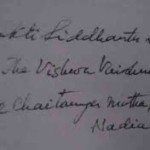 akti Siddhanta
The Vishwa Vaishnav
e Chaitanya Matha,
Nadia